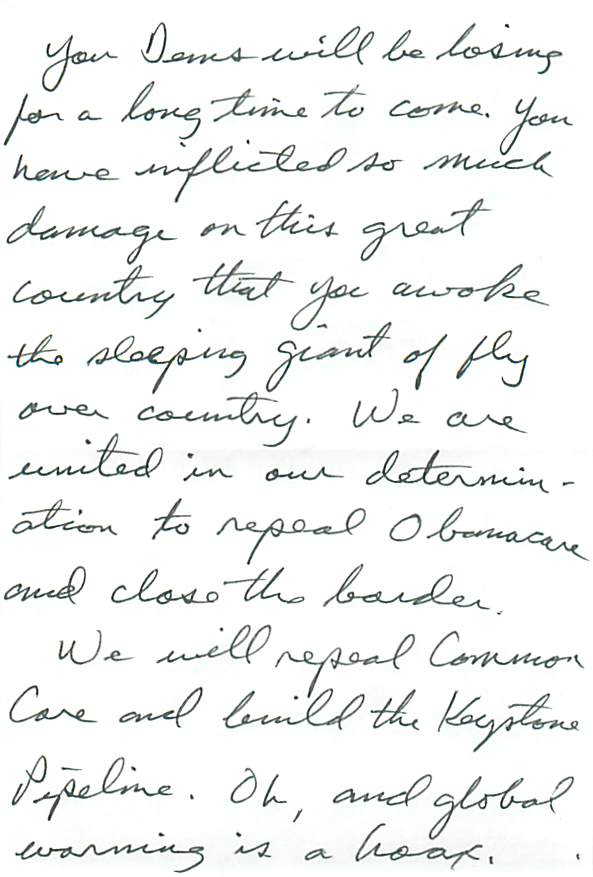 You Dems will be losing
for a long time to come. You
have inflicted so much
damage on this great
country that you awoke
the sleeping giant of fly
over country. We are
united in our determin-
ation to repeal Obamacare
and close the border.
We will repeal Common
Core and build the Keystone
Pipeline. Oh, and global
warming is a hoax.